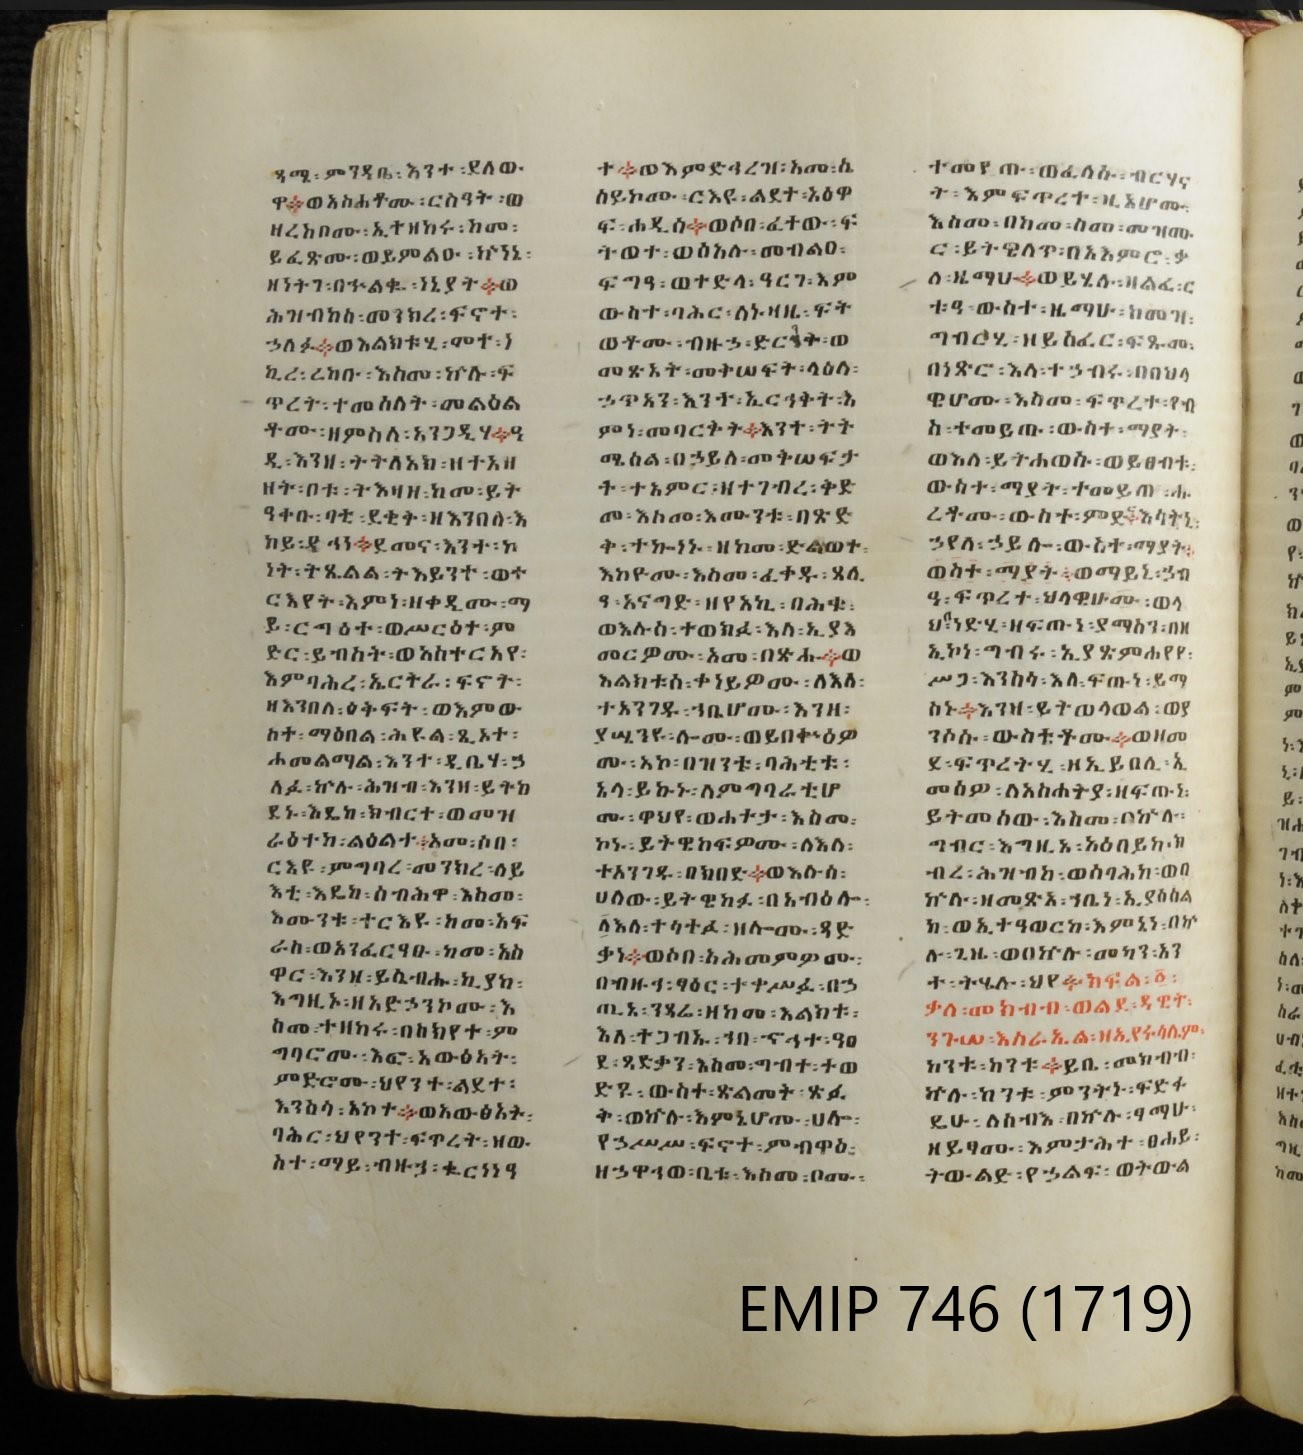 ዳሚ፡ምንዳቤ፡እንተ፡ደለው
ዋ፨ወአስሐቶሙ፡ርስዓት፡ወ
ዘረከቦሙ፡ኢተዘከሩ፡ከመ፡
ይፈጽሙ፡ወይምልዑ፡ኵነኔ፡
ዘነትገ፡በኍልቁ፡ነኒያት፨ወ
ሕዝብከሰ፡መንክረ፡ፍኖተ፡
ኃለፉ፨ወእልክቱሂ፡ሞተ፡ነ
ኪረ፡ረከቡ፡እስመ፡ኵሉ፡ፍ
ጥረት፡ተመሰለት፡መልዕል
ቶሙ፡ዘምስለ፡አንጋዲሃ፨ዓ
ዲ፡እንዘ፡ትትለአክ፡ዘተአዘ
ዘት፡ቦቱ፡ትእዛዘ፡ከመ፡ይት
ዓቀቡ፡ባቲ፡ደቂቅ፡ዘእንበለ፡እ
ከይ፡ድኅነ፨ደመና፡እንተ፡ኮ
ነት፡ትጼልል፡ትእይንተ፡ወተ
ርእየት፡እምነ፡ዘቀዲሙ፡ማ
ይ፡ርግዕተ፡ወሥርዕተ፡ም
ድር፡ይብስት፡ወአስተርአየ፡
እምባሕረ፡ኤርትራ፡ፍኖት፡
ዘእንበለ፡ዕቅፍት፡ወእምው
ስተ፡ማዕበል፡ሕየል፡ጺአተ፡
ሐመልማል፡እንተ፡ዲቤሃ፡ኃ
ለፈ፡ኵሉ፡ሕዝብ፡እንዘ፡ይትከ
ደኑ፡እዴከ፡ክብርተ፡ወመዝ
ራዕተከ፡ልዕልተ፨አመ፡ሰበ፡
ርእዩ፡ምግባረ፡መንክረ፡ሰይ
እቲ፡እዴከ፡ሰብሕዋ፡እስመ፡
እሙንቱ፡ተርእዩ፡ከመ፡አፍ
ራስ፡ወአንፈርዓፁ፡ከመ፡አስ
ዋር፡እንዘ፡ይሴብሑ፡ኪያከ፡
እግዚኦ፡ዘአድኃንኮሙ፡እ
ስመ፡ተዘከሩ፡በከክየተ፡ም
ግባሮሙ፡እፎ፡አውፅአት፡
ምድሮሙ፡ህየንተ፡ልደተ፡
እንስሳ፡አኮተ፨ወአውፅአት፡
ባሕር፡ህየንተ፡ፍጥረት፡ዘው
ስተ፡ማይ፡ብዙኃ፡ቈርነነዓ
ተ፨ወእምድኅረዝ፡አመ፡ሴ
ሰይኮሙ፡ርእዩ፡ልደተ፡አዕዋ
ፍ፡ሐዲስ፨ወሶበ፡ፈተው፡ፍ
ትወተ፡ወሰአሉ፡መብልዐ፡
ፍግዓ፡ወተድላ፡ዓርገ፡እም
ውስተ፡ባሕር፡ሰነዛዜ፡ፍት
ወቶሙ፡ብዙኃ፡ድርንት፡ወ
መጽአት፡መትሠፍት፡ላዕለ፡
ኃጥአን፡እንተ፡ኢርኅቅት፡እ
ምነ፡መባርቅት፨እንተ፡ትት
ሜሰል፡በኃይለ፡መትሠፍታ
ት፡ተአምር፡ዘተገብረ፡ቅድ
መ፡እስመ፡እሙንቱ፡በጽድ
ቅ፡ተኰነኑ፡ዘከመ፡ድልወተ፡
እከዮሙ፡እስመ፡ፈቀዱ፡ጸሊ
ዓ፡አናግድ፡ዘየአኪ፡በሕቁ፡
ወእሉሰ፡ተወክፈ፡እለ፡ኢያአ
መርዎሙ፡አመ፡በጽሑ፨ወ
እልክቱሰ፡ቀነይዎሙ፡ለእለ፡
ተአንገዱ፡ኀቤሆሙ፡እንዘ፡
ያሤንዩ፡ሎሙ፡ወይበቍዕዎ
ሙ፡አኮ፡በዝንቱ፡ባሕቲቱ፡
አላ፡ይኴኑ፡ለምግባራቲሆ
ሙ፡ዋህየ፡ወሐተታ፡እስመ፡
ኮኑ፡ይትዌከፍዎሙ፡ለእለ፡
ተአንገዱ፡በክበድ፨ወእሉሰ፡
ሀለው፡ይትዌከፉ፡በአብዕሎ፡
ለእለ፡ተሳተፈ፡ዘሎሙ፡ጻድ
ቃነ፨ወሶበ፡አሕመምዎሙ፡
በብዙኅ፡ፃዕር፡ተቀሥፈ፡በኃ
ጢአ፡ንጻሬ፡ዘከመ፡እልክቱ፡
እለ፡ተጋብኡ፡ኀበ፡ኆኅተ፡ዓፀ
ደ፡ጻድቃን፡እስመ፡ግብተ፡ተወ
ድዩ፡ውስተ፡ጽልመት፡ጽፈ
ቅ፡ወኵሉ፡እምኔሆሙ፡ሀሎ፡
የኃሥሥ፡ፍኖተ፡ምብዋዕ፡
ዘኃዋኅወ፡ቤቱ፡እስመ፡ቦሙ፡
ተመየጡ፡ወፈለሱ፡ብርሃና
ት፡እምፍጥረተ፡ዚአሆሙ፡
እስመ፡በከመ፡ስመ፡መዝሙ
ር፡ይትዌለጥ፡በአእምሮ፡ቃ
ለ፡ዜማሁ፨ወይሄሉ፡ዘልፈ፡ር
ቱዓ፡ውስተ፡ዜማሁ፡ከመዝ፡
ግብርሂ፡ዘይሰፈር፡ፍጹመ፡
በነጽሮ፡እለ፡ተኃብሩ፡በበህላ
ዌሆሙ፡እስመ፡ፍጥረተ፡የብ
ስ፡ተመይጡ፡ውስተ፡ማያት፡
ወእለ፡ይትሐወሱ፡ወይፀብቱ፡
ውስተ፡ማያት፡ተመይጠ፡ሑ
ረቶሙ፡ውስተ፡ምድር፡እሳትኒ፡
ኃየለ፡ኃይሎ፡ውስተ፡ማያት፡
ወስተ፡ማያት፡ወማይኒ፡ኃብ
ዓ፡ፍጥረተ፡ህላዌሁሙ፡ወላ
ህብ፡ነድሂ፡ዘፍጡነ፡ያማስን፡በዘ
ኢኮነ፡ግብሩ፡ኢያጽምሐየየ፡
ሥጋ፡እንስሳ፡እለ፡ፍጡነ፡ይማ
ስኑ፨እንዘ፡ይትጠሳወል፡ወያ
ንሶሱ፡ውስቴቶሙ፨ወዘመ
ደ፡ፍጥረትሂ፡ዘኢይበሊ፡ኢ
መሰዎ፡ለአስሐትያ፡ዘፍጡነ፡
ይትመሰው፡እስመ፡በኵሉ፡
ግብር፡እግዚኦ፡አዕበይከ፡ክ
ብረ፡ሕዝብከ፡ወሰባሕከ፡ወበ
ኵሉ፡ዘመጽአ፡ኀቤነ፡ኢያስሰል
ከ፡ወኢተዓወርከ፡እምኔነ፡በኵ
ሉ፡ጊዜ፡ወበኵሉ፡መካን፡አን
ተ፡ትሄሉ፡ህየ፨ክፍል፡፩፡
ቃለ፡መክብብ፡ወልደ፡ዳዊት፡
ንጉሠ፡እስራኤል፡ዘኢየሩሳሌም፡
ከንቱ፡ከንቱ፨ይቤ፡መክብብ፡
ኵሉ፡ከንቱ፡ምንትኑ፡ፍድፋ
ዴሁ፡ለሰብእ፡በኵሉ፡ፃማሁ፡
ዘይፃሙ፡እምታሕተ፡ፀሐይ፡
ትውልድ፡የኃልፍ፡ወትውል
EMIP 746 (1719)